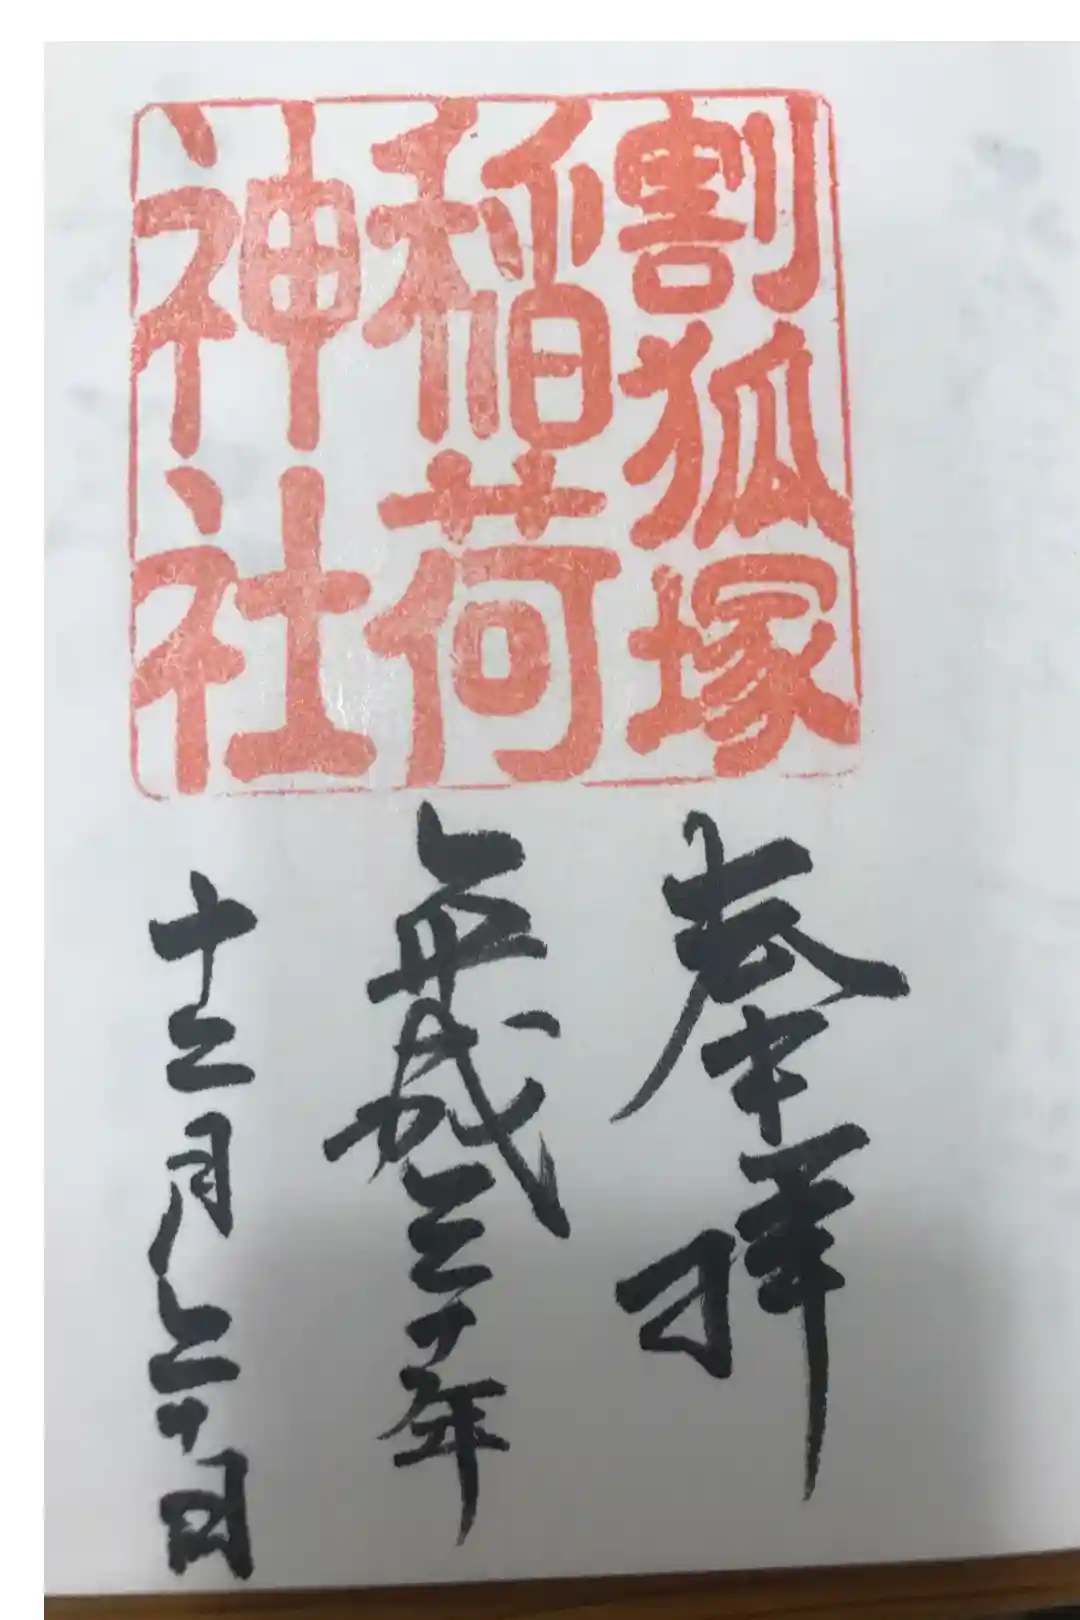 割狐塚
稲荷
神社
奉拝
平成三十年
十二月二十日